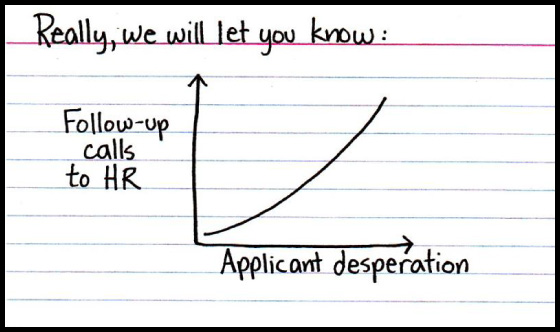 Really, we will let you know:
Follow-up
calls
to HR
Applicant desperation